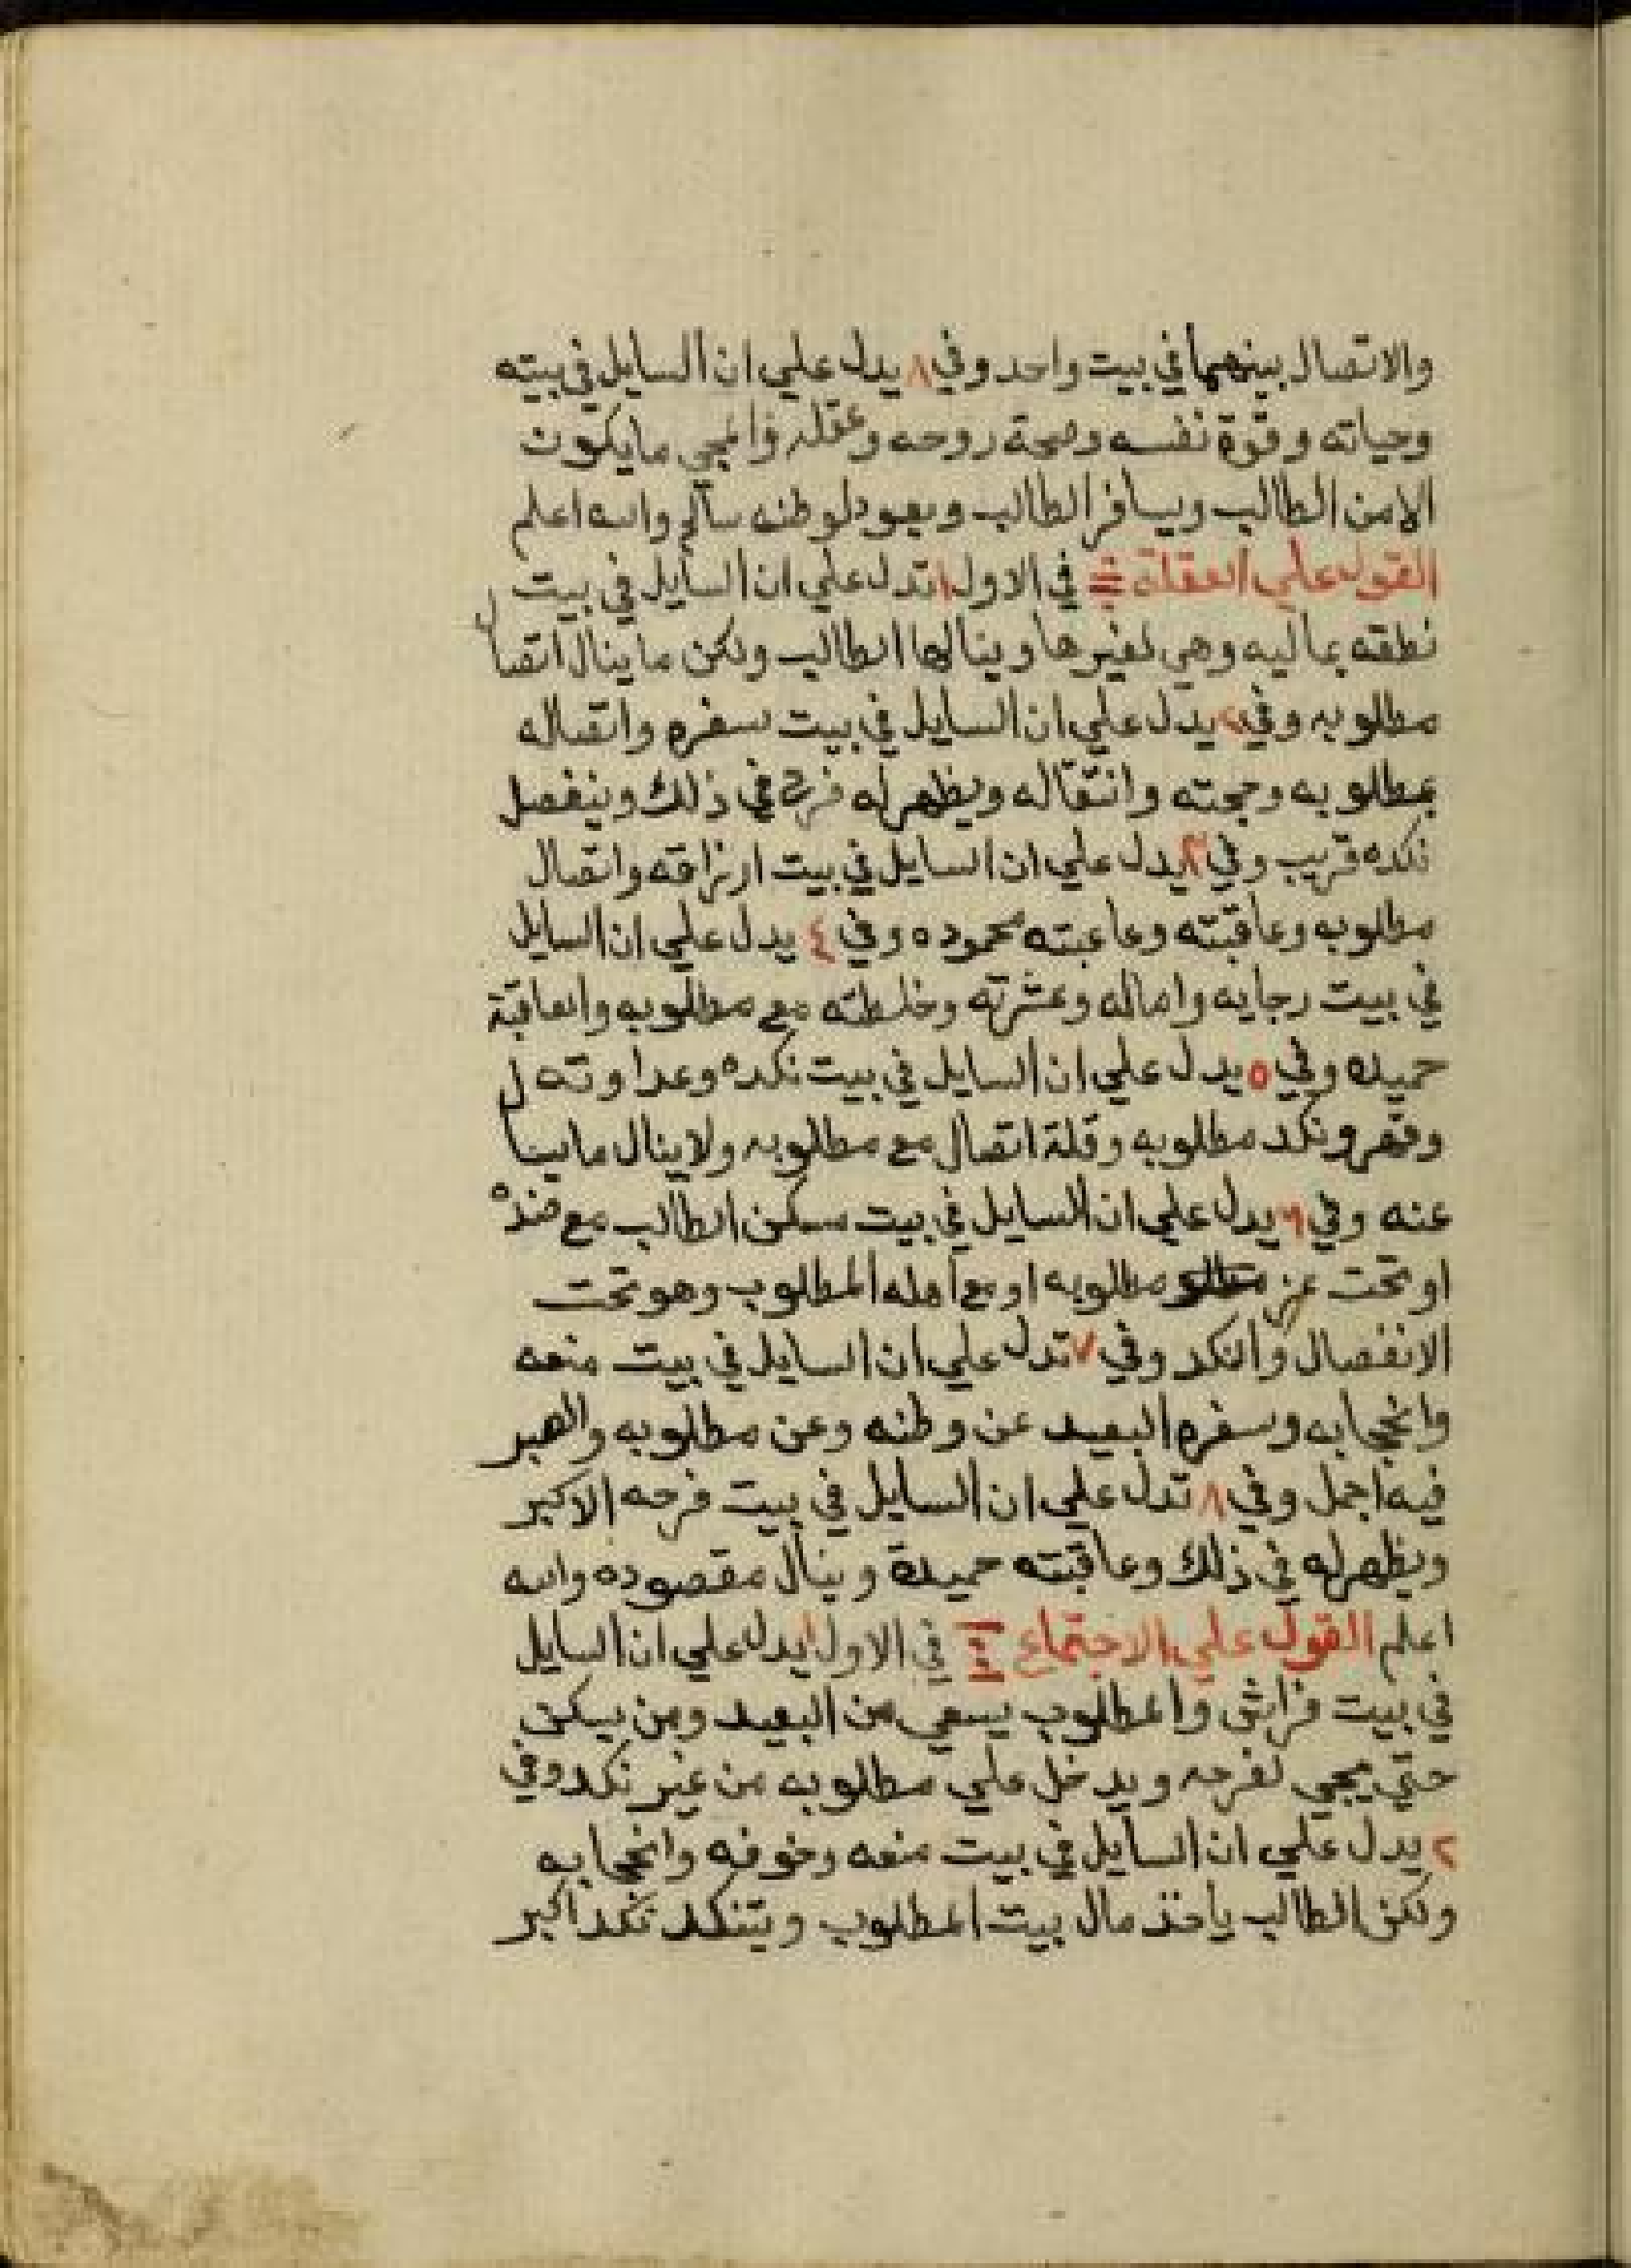 والاتصال بينهما في بيت واحد وفي ٨ يدل علي ان السايل في بيته
وحياته وقوة نفسه وصحة روحه وعقله والمجي ما يكون
الامن الطالب ويسافر الطالب ويعود لوطنه سالم والله اعلم
القول علي العقلة في الاول ١ تدل علي ان السايل في بيت
نطقه بماليه وهي لغيرها وينالها الطالب ولكن ما ينال اتصال
مطلوبه وفي ٢ يدل علي ان السايل في بيت سفره واتصاله
بمطلوبه وحجته وانتقاله ويظهر له فرح في ذلك وينفصل
نكده قريب وفي ٣ يدل علي ان السايل في بيت ارزاقه واتصال
مطلوبه وعاقبته وعاعبته محموده وفي ٤ يدل علي ان السايل
في بيت رجايه واماله وعشرته وخلطته مع مطلوبه والعاقبة
حميده وفي ٥ يدل علي ان السايل في بيت نكده وعداوته
وقهر ونكد مطلوبه وقلة اتصال مع مطلوبه ولا ينال ما ينال
عنه وفي ٦ يدل علي ان السايل في بيت سكن الطالب مع ضده
او تحت عن مطلوبه او مع اهله المطلوب وهو تحت
الانفصال والنكد وفي ٧ تدل علي ان السايل في بيت منعه
وانحجابه وسفره البعيد عن وطنه وعن مطلوبه والصبر
فيه اجمل وفي ٨ تدل علي ان السايل في بيت فرحه الاكبر
ويظهر له في ذلك وعاقبته حميدة وينال مقصوده والله
اعلم القول علي الاجتماع في الاول ١ يدل علي ان السايل
في بيت فراش والمطلوب يسعي من البعيد ومن يسكن
حتي يجي لفرحه ويدخل علي مطلوبه من غير نكد وفي
٢ يدل علي ان السايل في بيت منعه وخوفه وانحجابه
ولكن الطالب ياخذ مال بيت المطلوب ويتنكد نكد اكبر